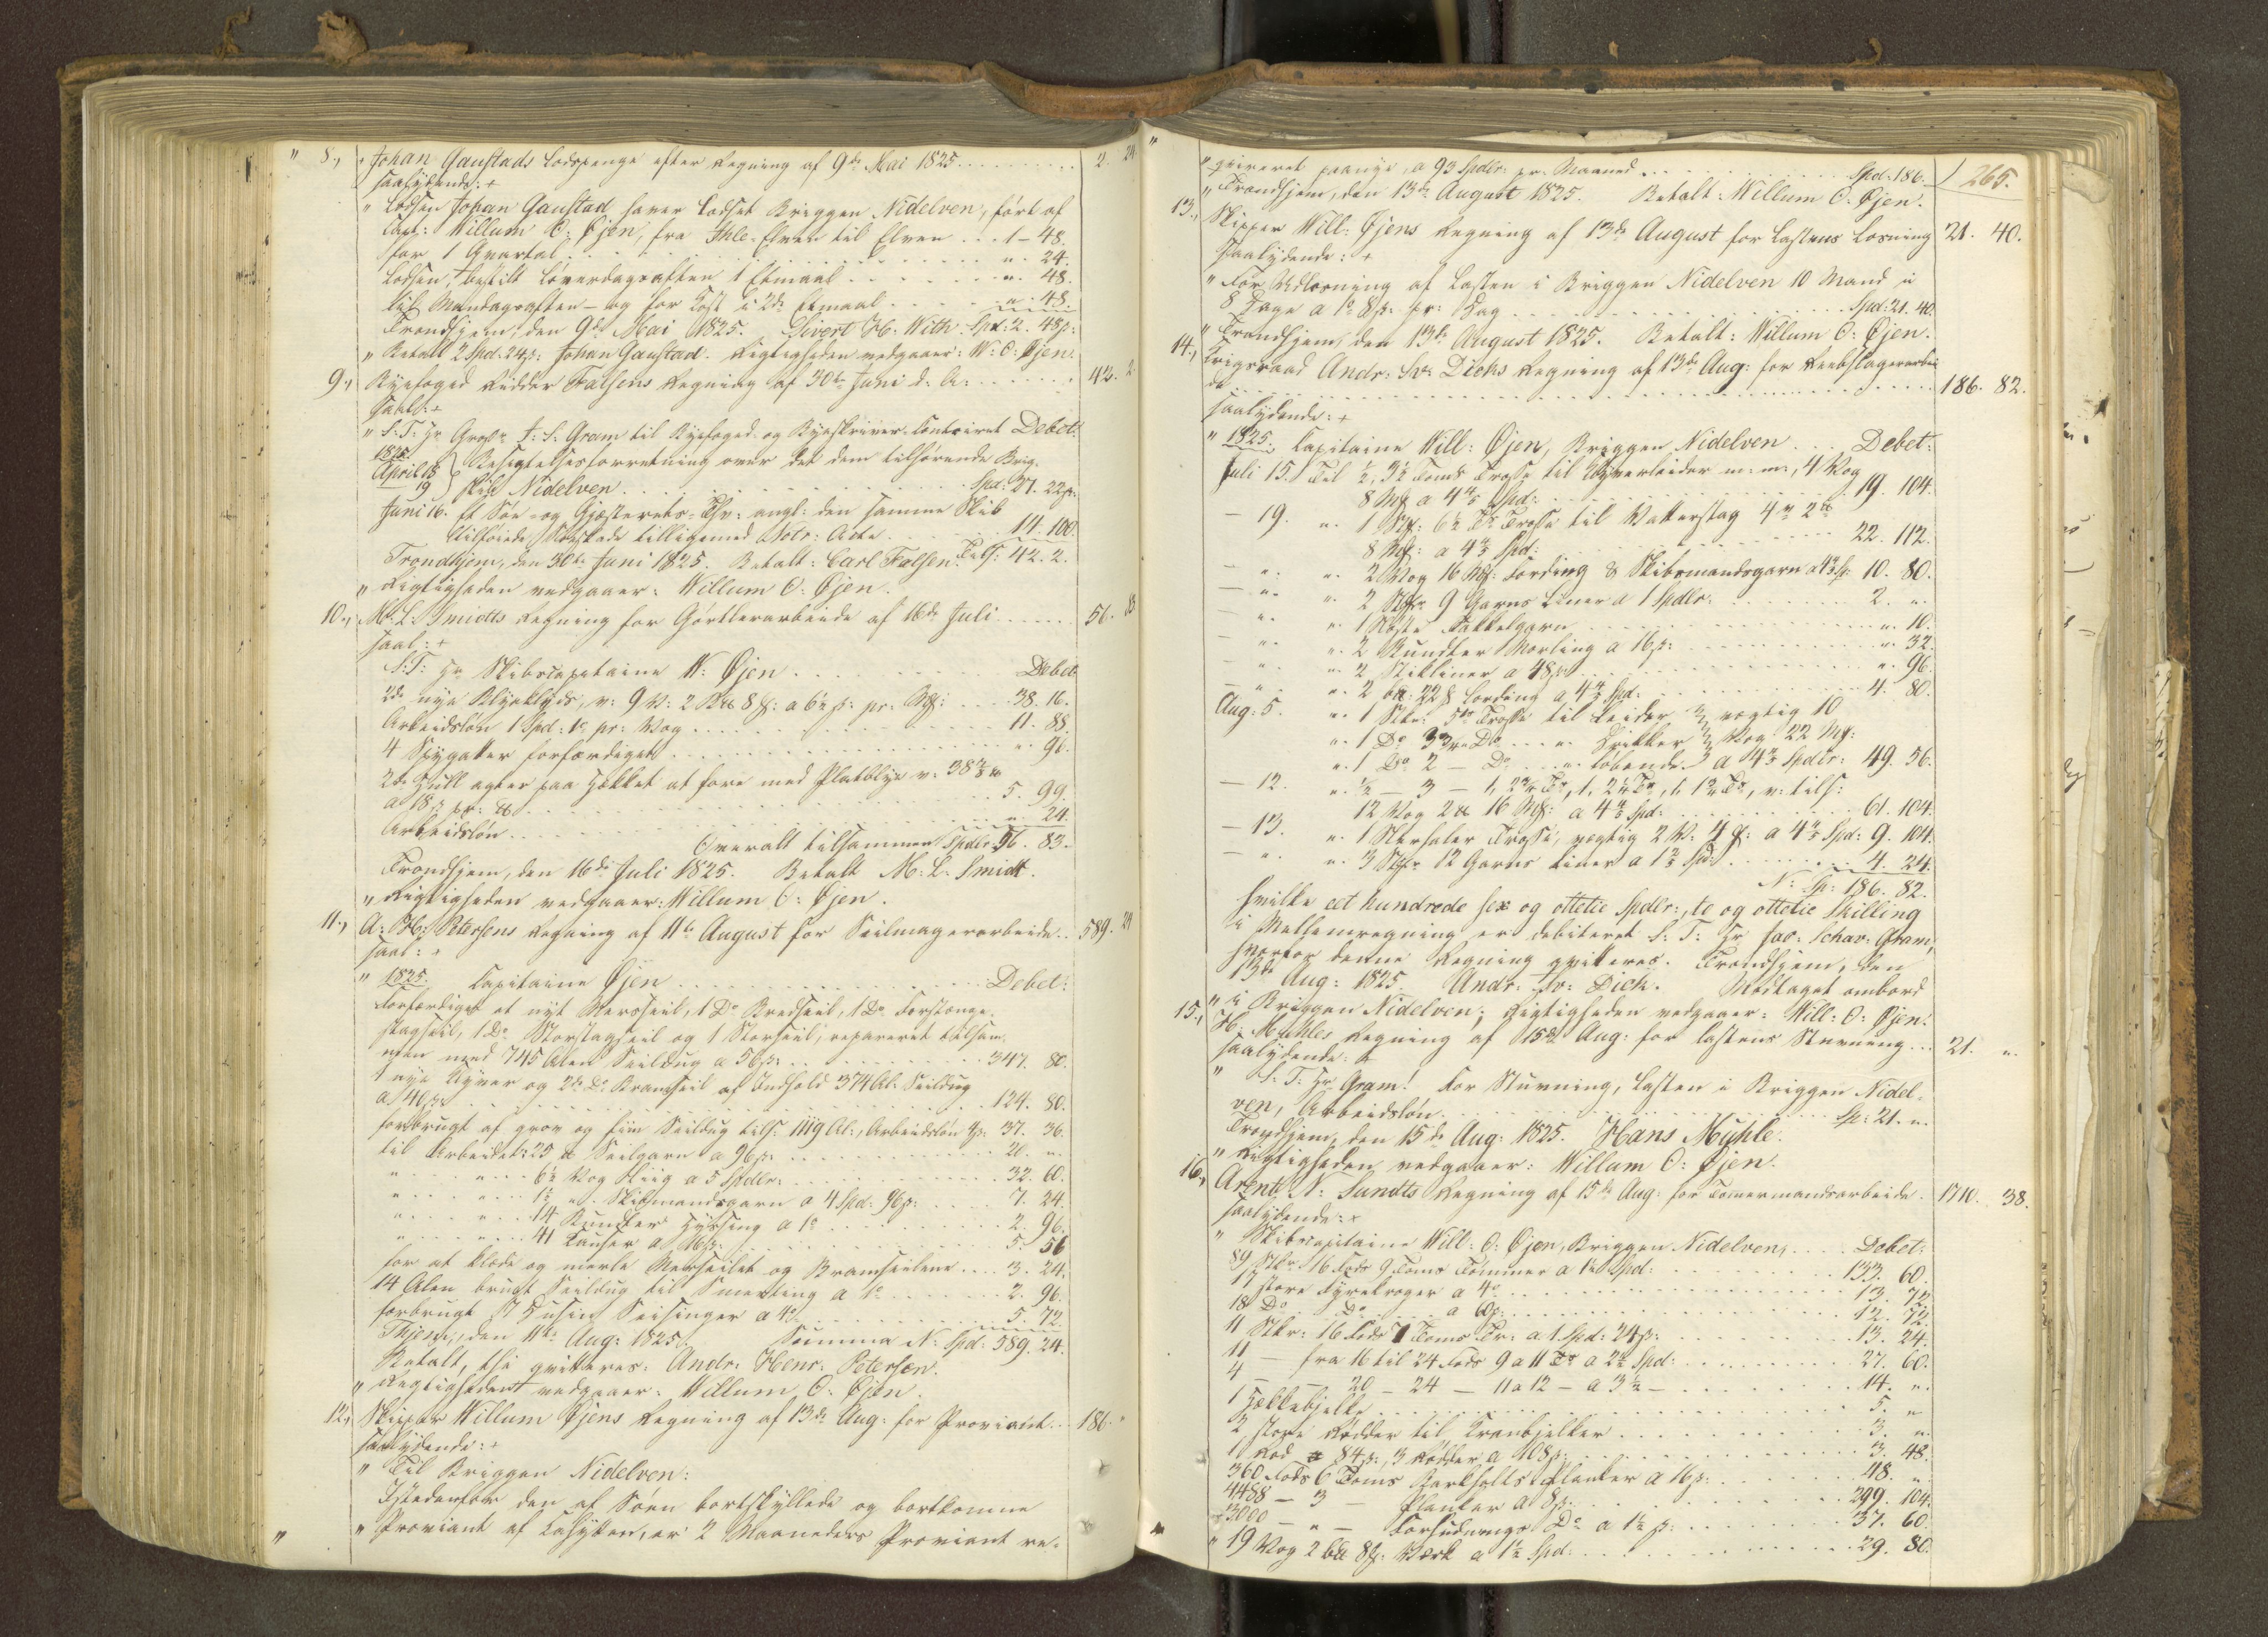 " 8., Johan Gaustads Lodspenge efter Regning af 9de Mai 1825 . . . . . 2. 24
saalydende: +
" Lodsen Johan Gaustad haver lodset Briggen Nidelven, fört af
Capt: Willum O: Öjen, fra Ihle-Elven til Elven . . . 1-48.
for 1 Qvartal . . . . . ". 24.
Lodsen, bestilt Löverdagsaften 1 Etmaal . . . . . ". 48.
til Mandagsaften - og for Kost i 2de Etmaal . . . . . ". 48.
Trondhjem, den 9de Mai 1825. Sivert H: With Spd: 2. 48 s:
" Betalt 2 Spd: 24 s: Johan Gaustad. Rigtigheden vedgaaer: W: O: Öjen.
9., Byefoged Ridder Falsens Regning af 30te Juni d: A: . . . . . 42. 2.
saal: +
" S: T: Hr Gros: J: S: Gram til Byefoged- og Byeskriver-Contoiret Debet:
1825.
April 18
19 } Besigtelsesforretning over det dem tilhörende Brig-
skib Nidelven . . . . . Spd: 27. 22 s:
Juni 16. Et Söe- og Gjæsterets-Thv: angl: den samme Skib
tilföiede Söeskade tilligemed Notr: Acte . . . . . 14. 100.
Trondhjem, den 30te Juni 1825. Betalt: Carl Falsen. Tils: 42. 2.
" Rigtigheden vedgaaer: Willum O: Öjen.
10., M: L: Smidts Regning for Görtlerarbeide af 16de Juli . . . . . 56. 83
saal: +
S: T: Hr Skibscapitaine W: Öjen . . . . . Debet
2de nye Klyeklyds, v: 9 V: 2 B 8 : a 6½ s: pr: Mk: . . . . 38. 16.
Arbeidslön 1 Spd: 1 pr: Vog . . . . . 11. 88.
4 Spygatter forfærdiget . . . . . ". 96.
2de Hull agter paa Hækket at fore med Platblye v:
a 18 s pr: . . . . . 5. 99.
Arbeidslön . . . . . ". 24.
Overalt tilsammen Spdlr: 56. 83.
Trondhjem, den 16de Juli 1825. Betalt M: L: Smidt.
" Rigtigheden vedgaaer: Willum O: Öjen.
11., A: H: Petersens Regning af 11te August for Seilmagerarbeide . . 589. 24
saal: +
" 1825. Capitaine Öjen . . . . . Debet:
Forfærdiget et nyt Merseil, 1 Do Bredseil, 1 Do Forstænge-
stagseil, 1 Do Storstagseil og 1 Storseil, repareret tilsam-
men med 745 Alen Seildug a 56 s: . . . . . 347. 80.
1 nye Klyver og 2de Do Bramseil af Indhold 374 Al: Seildug
a 40 s: . . . . . 124. 80.
forbrugt af grov og fiin Seildug tils: 1119 Al:, Arbeidslön 4 s: 37. 36.
til Arbeidet: 25 Seilgarn a 96 s: . . . . . 20. ".
" . . . " . . . 6½ Vog Liig a 5 Spdlr: . . . . . 32. 60.
" . . . " . . . 1½ ". Skibmandsgarn a 4 Spd: 96 s: . . . . . 7. 24.
" . . . " . . . 14 Bundter Hyssing a 1 . . . . . 2. 96.
" . . . " . . . 41 Kauser a 16 s: . . . . . 5. 56
for at klæde og merle Merseilet og Bramseilene . . . 3. 24.
14 Alen brugt Seildug til Smerting a 1 . . . . . 2. 96.
forbrugt 17 Dusin Seisinger a 4 . . . . . 5. 72.
Thjem, den 11te Aug: 1825. Summa N: Spd: 589. 24.
Betalt, thi qvitteres: Andr: Henr: Petersen.
" Rigtigheden vedgaaer: Willum O: Öjen.
12., Skipper Willum Öjens Regning af 13de Aug: for Proviant . . . 186. "
saalydende: +
" Til Briggen Nidelven:
Istedenfor den af Söen bortskyllede og bortkomne
" Proviant af Cahytten, er 2 Maaneders Proviant re-
265.
" qvireret paanye, a 93 Spdlr: pr: Maaned . . . . . Spd: 186.
" Trondhjem, den 13de August 1825. Betalt: Willum O: Öjen.
13., Skipper Will: Öjens Regning af 13de August for Lastens Losning 21. 40.
saalydende: +
" For Udlosning af Lasten i Briggen Nidelven 10 Mand i
8 Dage a 1 8 s: pr: Dag . . . . . Spd: 21. 40.
" Trondhjem, den 13de August 1825. Betalt: Willum O: Öjen.
14., Krigsraad Andr: Sv: Dicks Regning af 13de Aug: for Reebslagerarbei-
de . . . . . 186. 82.
saalydende: +
" 1825. Capitaine Will: Öjen, Briggen Nidelven . . . Debet:
Juli 15. Til ½, 3½ Toms Trosse til Klyverleider m: m:, 4 Vog
8 Mk a 4⅘ Spd: . . . . . 19. 104.
- 19. ". 1 Stk: 6½ T: Trosse til Vatterstag 4 V 2
8 Mk: a 4⅘ Spd: . . . . . 22. 112.
- ". ". 2 Vog 16 Mk: Lording & Skibsmandsgarn a 4⅘ Sp: 10. 80.
- ". ". 2 Stkr 9 Garns Liner a 1 Spdlr: . . . . . 2. ".
- ". ". 1 Röste Takkelgarn . . . . . ". 10.
- ". ". 2 Bundter Morling a 16 s: . . . . . ". 32.
- ". ". 2 Stikliner a 48 s: . . . . . ". 96.
- ". ". 2 : 22 Lording a 4⅘ Spd: . . . . . 4. 80.
Aug: 5. ". 1 Stk: 5 Trosse til Leider vegtig 10
". 1 Do 3¾ Do . . . ". Drikker Vog 22 Mk:
". 1 Do 2 - Do . . . ". löbende a 4⅘ Spdlr: 49. 56.
- 12. ". ½ - 3 - 1, 2¾ Do, 1, 2½ Do, 1, 1¾ Do, v: tils:
12 Vog 2 16 Mk: a 4⅘ Spd: . . . . . 61. 104.
- 13. ". 1 Trosse, vegtig 2 V: 4 : a 4⅘ Spd: 9. 104.
- ". ". 3 Stkr 12 Garns Liner a 1⅖ Spd: . . . . . 4. 24.
N: Sp: 186. 82.
hvilke eet hundrede sex og ottetie Spdlr:, to og ottetie Skilling
i Mellemregning er debiteret S: T: Hr Jac: Schav: Gram,
hvorfor denne Regning qvitteres. Trondhjem, den
13de Aug: 1825. Andr: Sv: Dick. Modtaget ombord
" i Briggen Nidelven; Rigtigheden vedgaaer: Will: O: Öjen.
15., H: Mühles Regning af 15de Aug: for Lastens Stuvning . . . 21. ".
saalydende: +
" S: T: Hr Gram! For Stuvning, Lasten i Briggen Nidel-
ven, Arbeidslön . . . . . Sp: 21. ".
Trondhjem, den 15de Aug: 1825. Hans Mühle.
" Rigtigheden vedgaaer: Willum O: Öjen.
16., Arent N: Sundts Regning af 15de Aug: for Tömermandsarbeide . 1710. 38.
saalydende: +
" Skibscapitaine Will: O: Öjen, Briggen Nidelven, . . . . Debet:
89 Stkr 16 Fods 9 Toms Tömmer a 1½ Spd: . . . . . 133. 60.
17 store Fyrekroger a 4 . . . . . 13. 72.
18 Do . . Do . . . a 60 s: . . . . . 12. 72.
11 Stkr: 16 Fods 7 Toms Tr: a 1 Spd: 24 s: . . . . . 13. 24.
11 - fra 16 til 24 Fods 9 a 11 Do a 2½ Spd: . . . . . 27. 60.
4 - - 20 - 24 - 11 a 12 - a 3½ - . . . . . 14. ".
1 Hækkebjelke . . . . . 5. ".
2 store Rödder til Kranbjelker . . . . . 3. ".
1 Rod a 84 s:, 3 Rödder a 108 s: . . . . . 3. 48.
360 Fods 6 Toms Barkholts Planker a 16 s: . . . . . 48. ".
4488 - 3 - Planker a 8 s: . . . . . 299. 104.
3000 - " - Forhudnings Do a 1½ s: . . . . . 37. 60.
" 19 Vog 2 8 : Værk a 1½ Spd: . . . . . 29. 80.